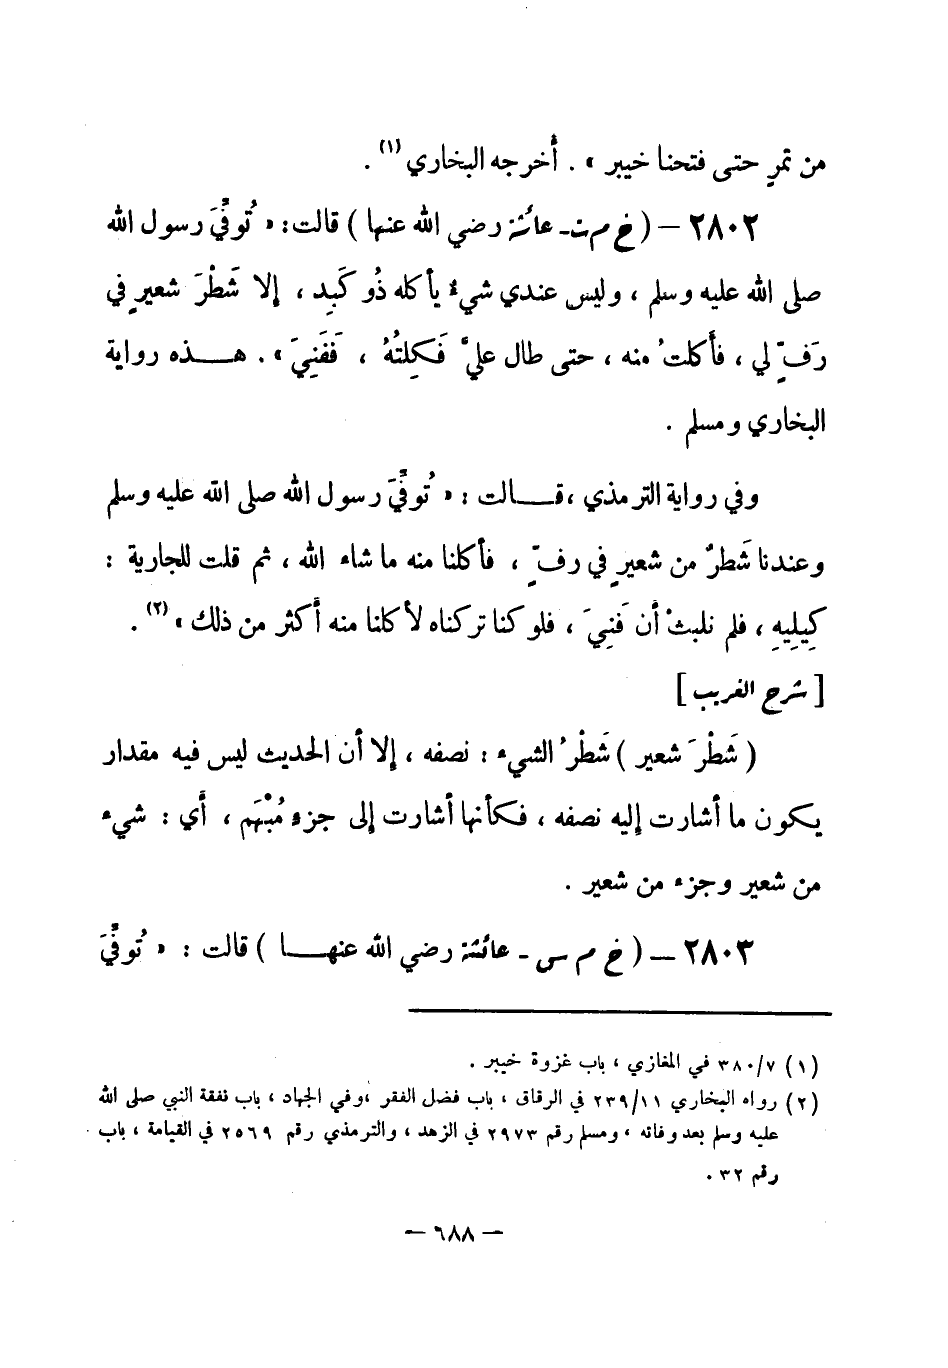 من تمرٍ حتى فتحنا خيبر » . أخرجه البخاري (١) .
٢٨٠٢ – ( خ م ت – عائشة رضي الله عنها ) قالت : « تُوفِّيَ رسول الله
صلى الله عليه وسلم ، وليس عندي شيءٌ يأكله ذُو كَبِد ، إلا شَطْرَ شعيرٍ في
رَفٍّ لي ، فأكلتُ منه ، حتى طال عليَّ فَكِلتُهُ ، فَفَنِيَ » . هـذه رواية
البخاري ومسلم .
وفي رواية الترمذي ، قـالت : « تُوفِّيَ رسول الله صلى الله عليه وسلم
وعندنا شَطرٌ من شعيرٍ في رفٍّ ، فأكلنا منه ما شاء الله ، ثم قلت للجارية :
كِيلِيهِ ، فلم نلبثْ أن فَنِيَ ، فلو كنا تركناه لأكلنا منه أكثر من ذلك » (٢) .
[ شرح الغريب ]
( شَطْرَ شعير ) شَطْرُ الشيء : نصفه ، إلا أن الحديث ليس فيه مقدار
يكون ما أشارت إليه نصفه ، فكأنها أشارت إلى جزء مُبْهَم ، أي : شيء
من شعير وجزء من شعير .
٢٨٠٣ – ( خ م س – عائشة رضي الله عنهـا ) قالت : « تُوفِّيَ
(١) ٣٨٠/٧ في المغازي ، باب غزوة خيبر .
(٢) رواه البخاري ٢٣٩/١١ في الرقاق ، باب فضل الفقر ، وفي الجهاد ، باب نفقة النبي صلى الله
عليه وسلم بعد وفاته ، ومسلم رقم ٢٩٧٣ في الزهد ، والترمذي رقم ٢٥٦٩ في القيامة ، باب
رقم ٣٢ .
– ٦٨٨ –